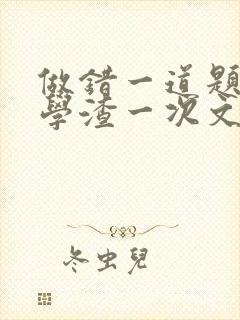 做錯一道題
學渣一次文
冬虫兒